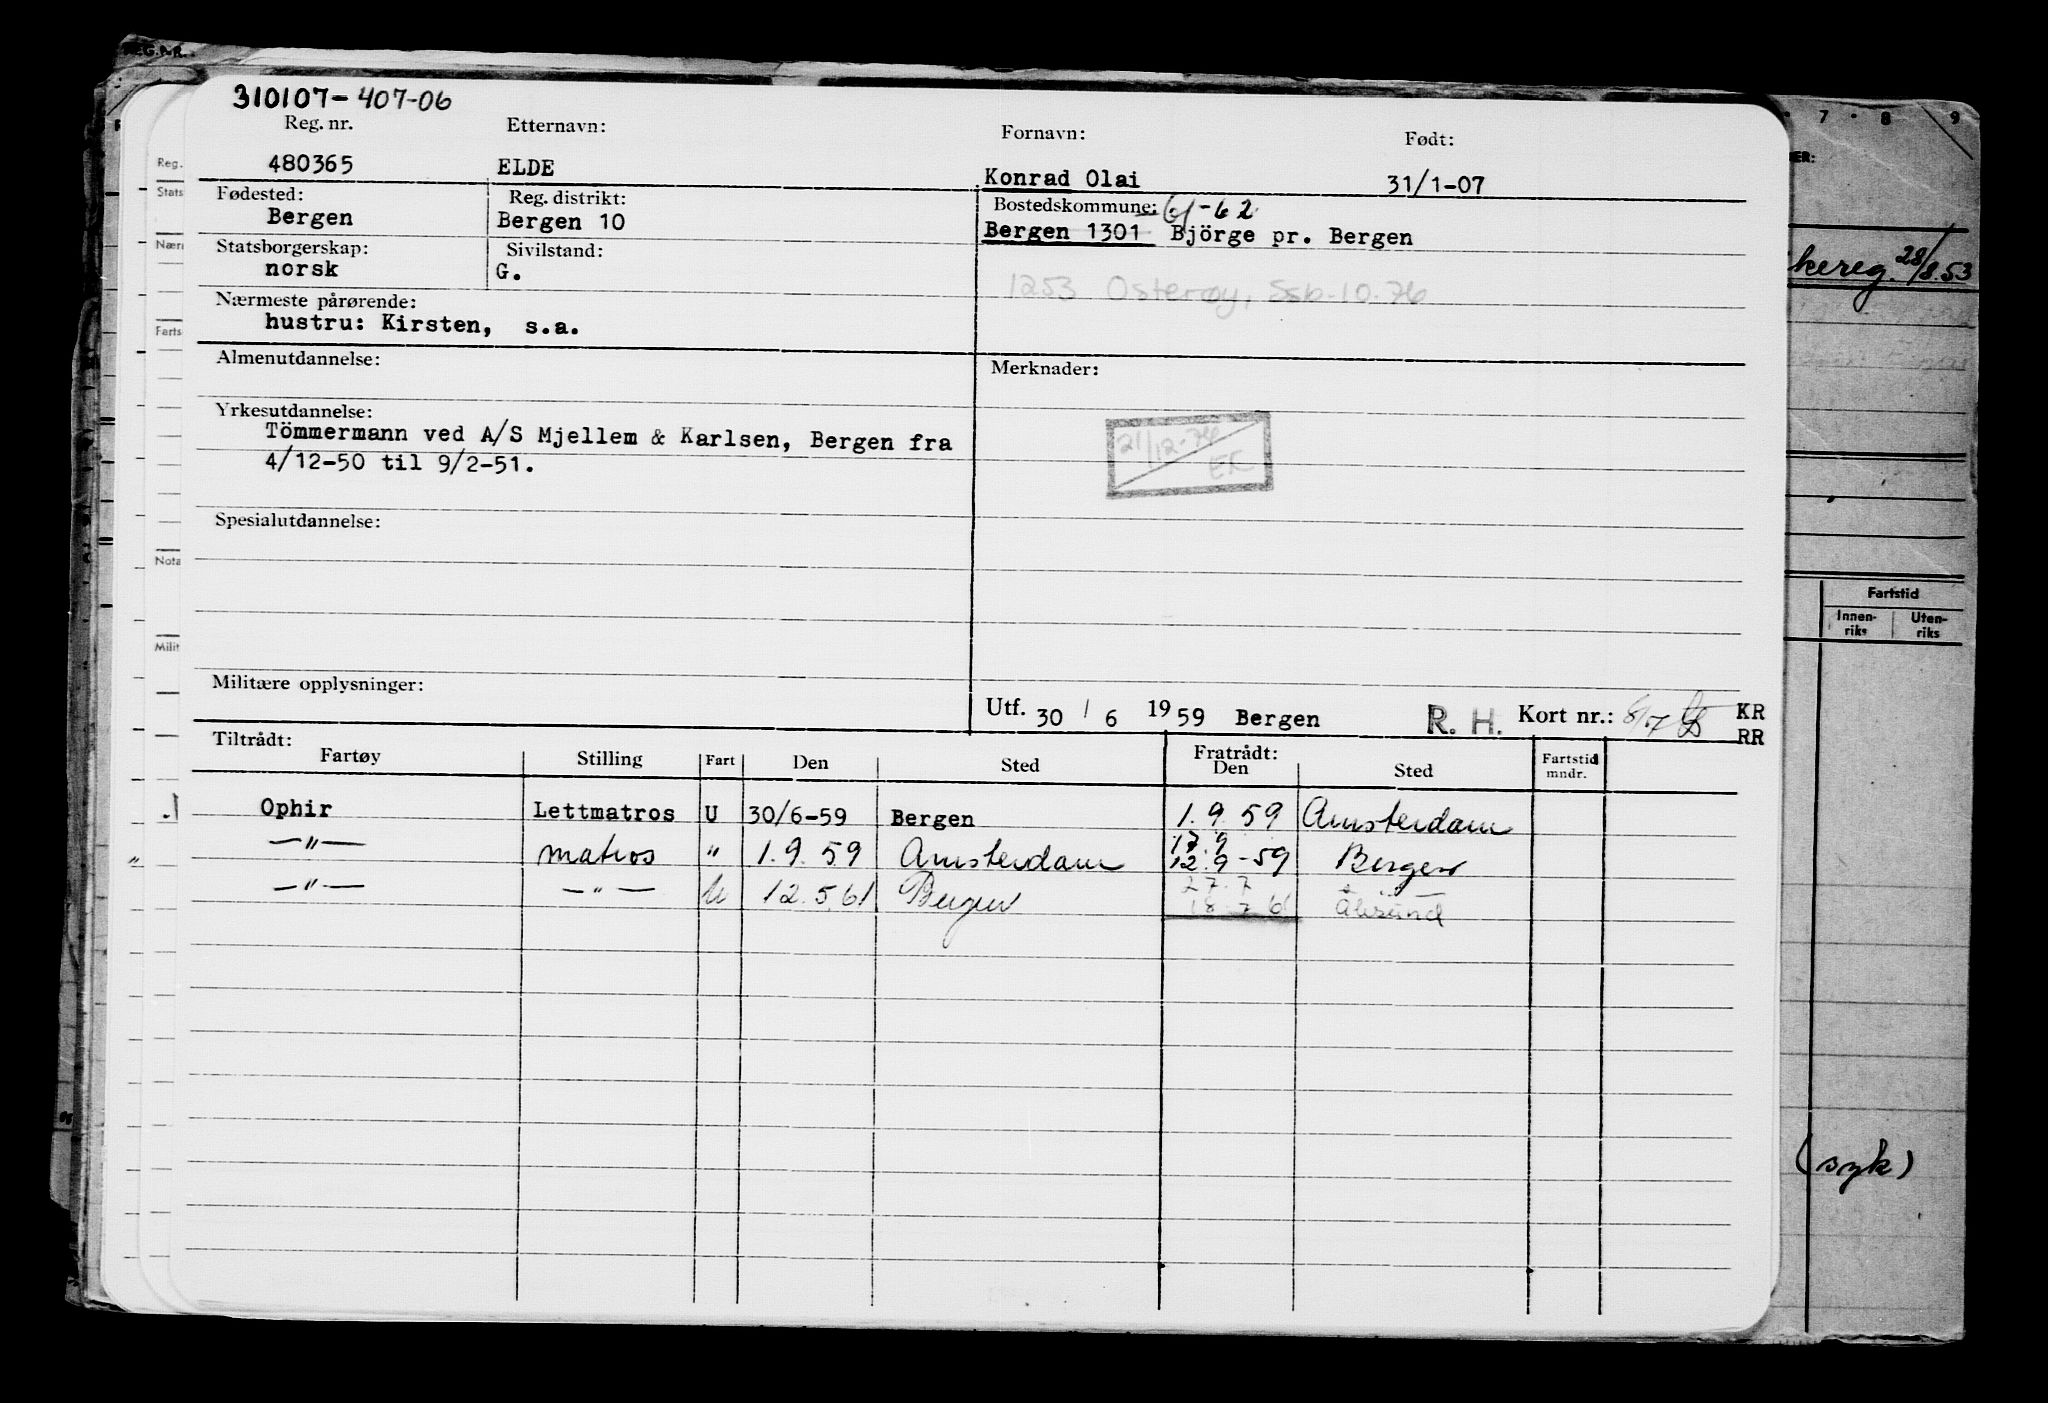 REG.NR.
310107-407-06
Reg. nr. Etternavn: Fornavn: Født:
480365 ELDE Konrad Olai 31/1-07
Fødested: Reg. distrikt: Bostedskommune: 61-62
Bergen Bergen 10 Bergen 1301 Björge pr. Bergen
Statsborgerskap: Sivilstand:
norsk G.
1253 Osterøy, Ssb.10.76
Nærmeste pårørende:
hustru: Kirsten, s.a.
Almenutdannelse: Merknader:
Yrkesutdannelse:
Tömmermann ved A/S Mjellem & Karlsen, Bergen fra
4/12-50 til 9/2-51.
21/12-76
EK
Spesialutdannelse:
Militære opplysninger:
Utf. 30 / 6 1959 Bergen R. H. Kort nr.: KR
RR
Tiltrådt: Fratrådt:
Fartøy Stilling Fart Den Sted Den Sted Fartstid mndr.
Ophir Lettmatros U 30/6-59 Bergen 1.9.59 Amsterdam
17.9
—"— matros " 1.9.59 Amsterdam 12.9-59 Bergen
27.7
—"— —"— U 12.5.61 Bergen 18.7.61 Ålesund
Reg.
Stats
Nær
Farts
Nota
Milit
7 8 9
28/8.53
Fartstid
Innen-
riks
Uten-
riks
(syk)